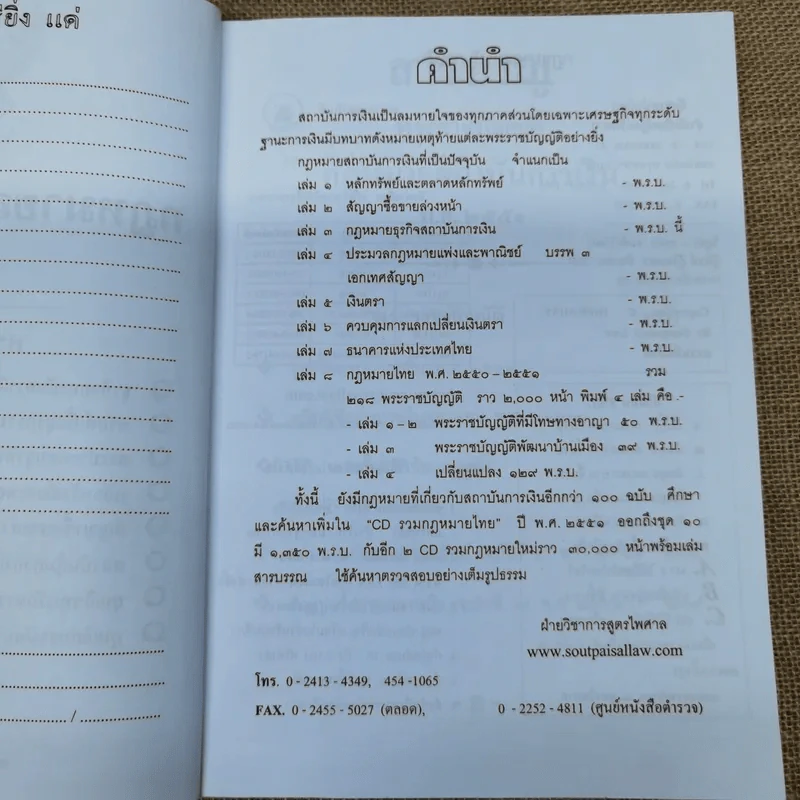 ยิ่ง แค่
คำนำ
สถาบันการเงินเป็นลมหายใจของทุกภาคส่วนโดยเฉพาะเศรษฐกิจทุกระดับ
ฐานะการเงินมีบทบาทดังหมายเหตุท้ายแต่ละพระราชบัญญัติอย่างยิ่ง
กฎหมายสถาบันการเงินที่เป็นปัจจุบัน จำแนกเป็น
เล่ม ๑ หลักทรัพย์และตลาดหลักทรัพย์ - พ.ร.บ.
เล่ม ๒ สัญญาซื้อขายล่วงหน้า - พ.ร.บ.
เล่ม ๓ กฎหมายธุรกิจสถาบันการเงิน - พ.ร.บ. นี้
เล่ม ๔ ประมวลกฎหมายแพ่งและพาณิชย์ บรรพ ๓
เอกเทศสัญญา - พ.ร.บ.
เล่ม ๕ เงินตรา - พ.ร.บ.
เล่ม ๖ ควบคุมการแลกเปลี่ยนเงินตรา - พ.ร.บ.
เล่ม ๗ ธนาคารแห่งประเทศไทย - พ.ร.บ.
เล่ม ๘ กฎหมายไทย พ.ศ. ๒๕๕๐ - ๒๕๕๑ รวม
๒๑๘ พระราชบัญญัติ ราว ๒,๐๐๐ หน้า พิมพ์ ๔ เล่ม คือ .-
- เล่ม ๑ - ๒ พระราชบัญญัติที่มีโทษทางอาญา ๕๐ พ.ร.บ.
- เล่ม ๓ พระราชบัญญัติพัฒนาบ้านเมือง ๓๙ พ.ร.บ.
- เล่ม ๔ เปลี่ยนแปลง ๑๒๙ พ.ร.บ.
ทั้งนี้ ยังมีกฎหมายที่เกี่ยวกับสถาบันการเงินอีกกว่า ๑๐๐ ฉบับ ศึกษา
และค้นหาเพิ่มใน "CD รวมกฎหมายไทย" ปี พ.ศ. ๒๕๕๑ ออกถึงชุด ๑๐
มี ๑,๓๕๐ พ.ร.บ. กับอีก ๒ CD รวมกฎหมายใหม่ราว ๓๐,๐๐๐ หน้าพร้อมเล่ม
สารบรรณ ใช้ค้นหาตรวจสอบอย่างเต็มรูปธรรม
ฝ่ายวิชาการสูตรไพศาล
www.soutpaisallaw.com
โทร. 0 - 2413 - 4349, 454 -1065
FAX. 0 - 2455 - 5027 (ตลอด), 0 - 2252 - 4811 (ศูนย์หนังสือตำรวจ)